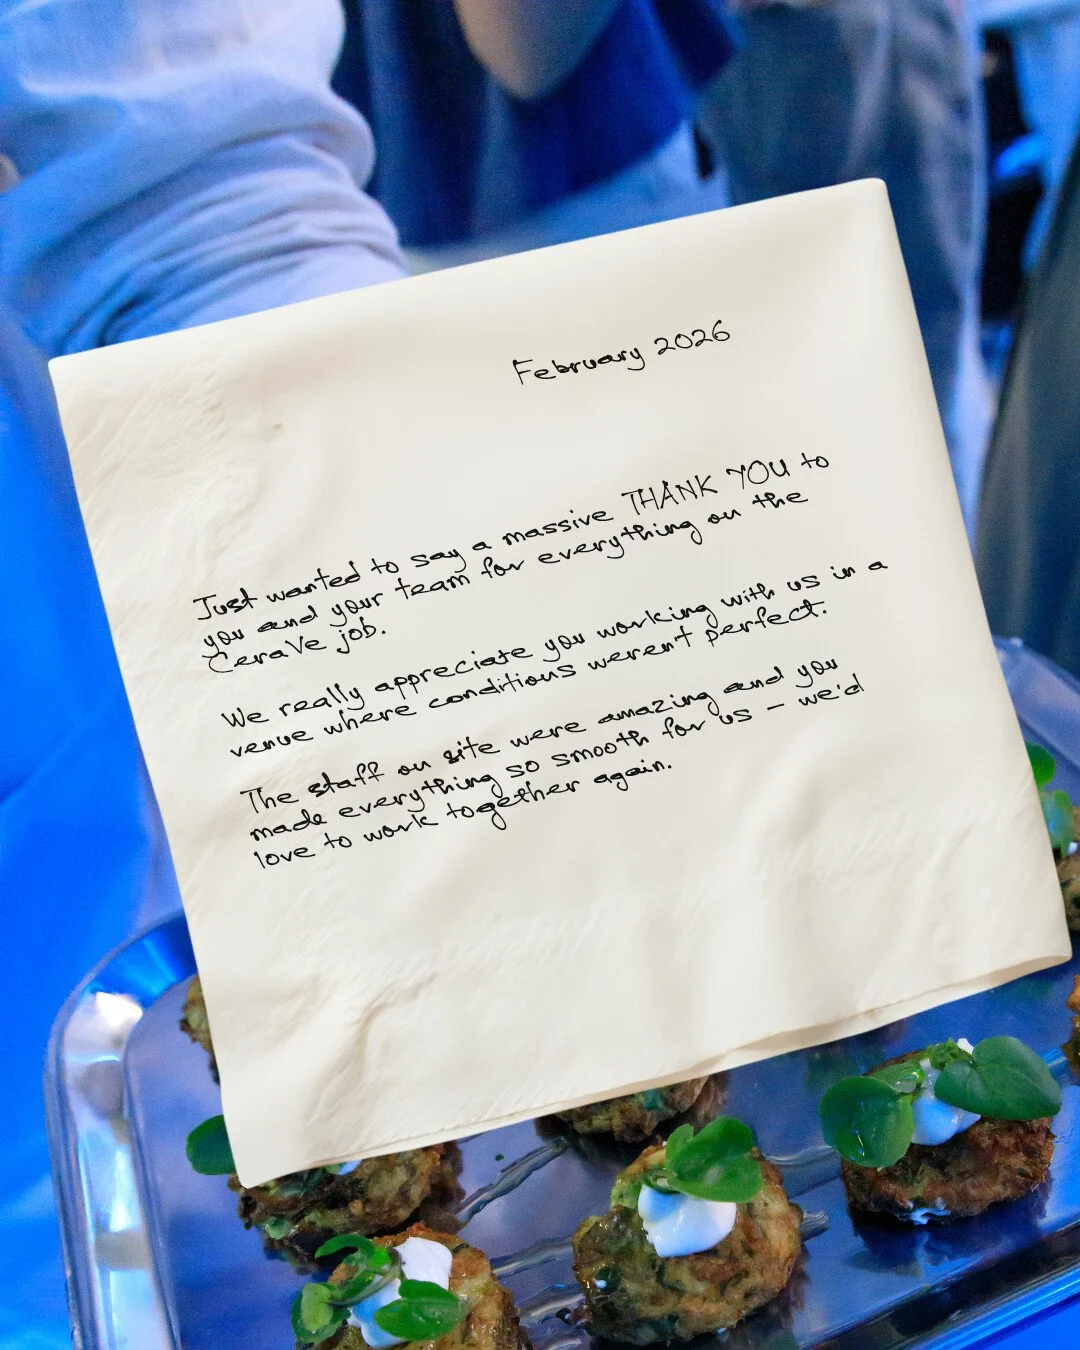 February 2026
Just wanted to say a massive THANK YOU to
you and your team for everything on the
CeraVe job.
We really appreciate you working with us in a
venue where conditions weren't perfect.
The staff on site were amazing and you
made everything so smooth for us – we'd
love to work together again.